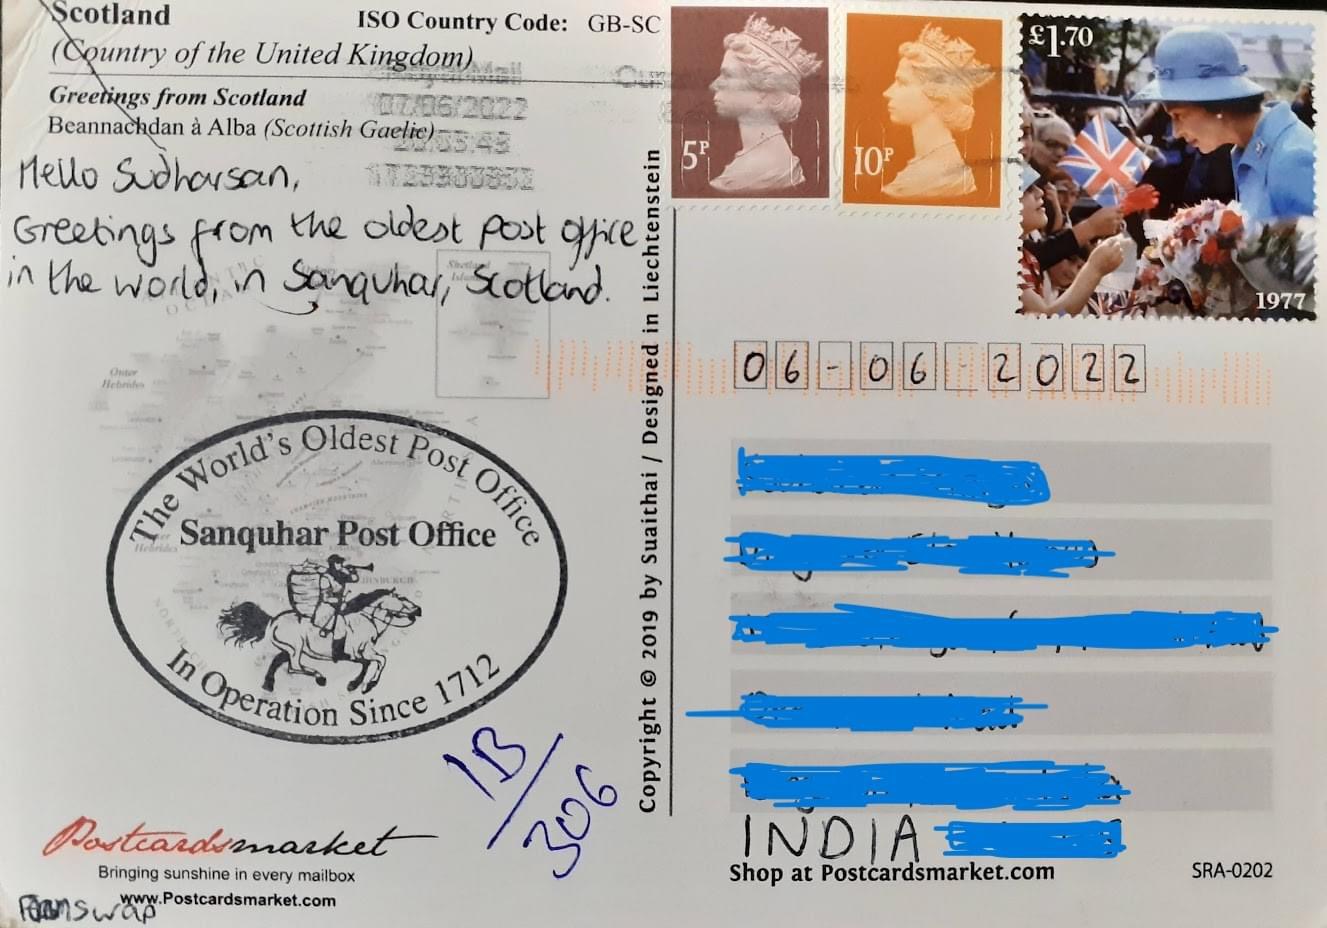 Scotland
ISO Country Code: GB-SC
(Country of the United Kingdom)
Greetings from Scotland
Beannachdan à Alba (Scottish Gaelic)
Royal Mail
07/06/2022
20:05:43
Hello Sudharsan,
Greetings from the oldest post office
in the world, in Sanquhar, Scotland.
Shetland
Outer
Hebrides
The World's Oldest Post Office
Sanquhar Post Office
EDINBURGH
In Operation Since 1712
1B/306
Postcardsmarket
Bringing sunshine in every mailbox
www.Postcardsmarket.com
Copyright © 2019 by Suaithai / Designed in Liechtenstein
5P
10P
£1.70
1977
06-06-2022
INDIA
Shop at Postcardsmarket.com
SRA-0202